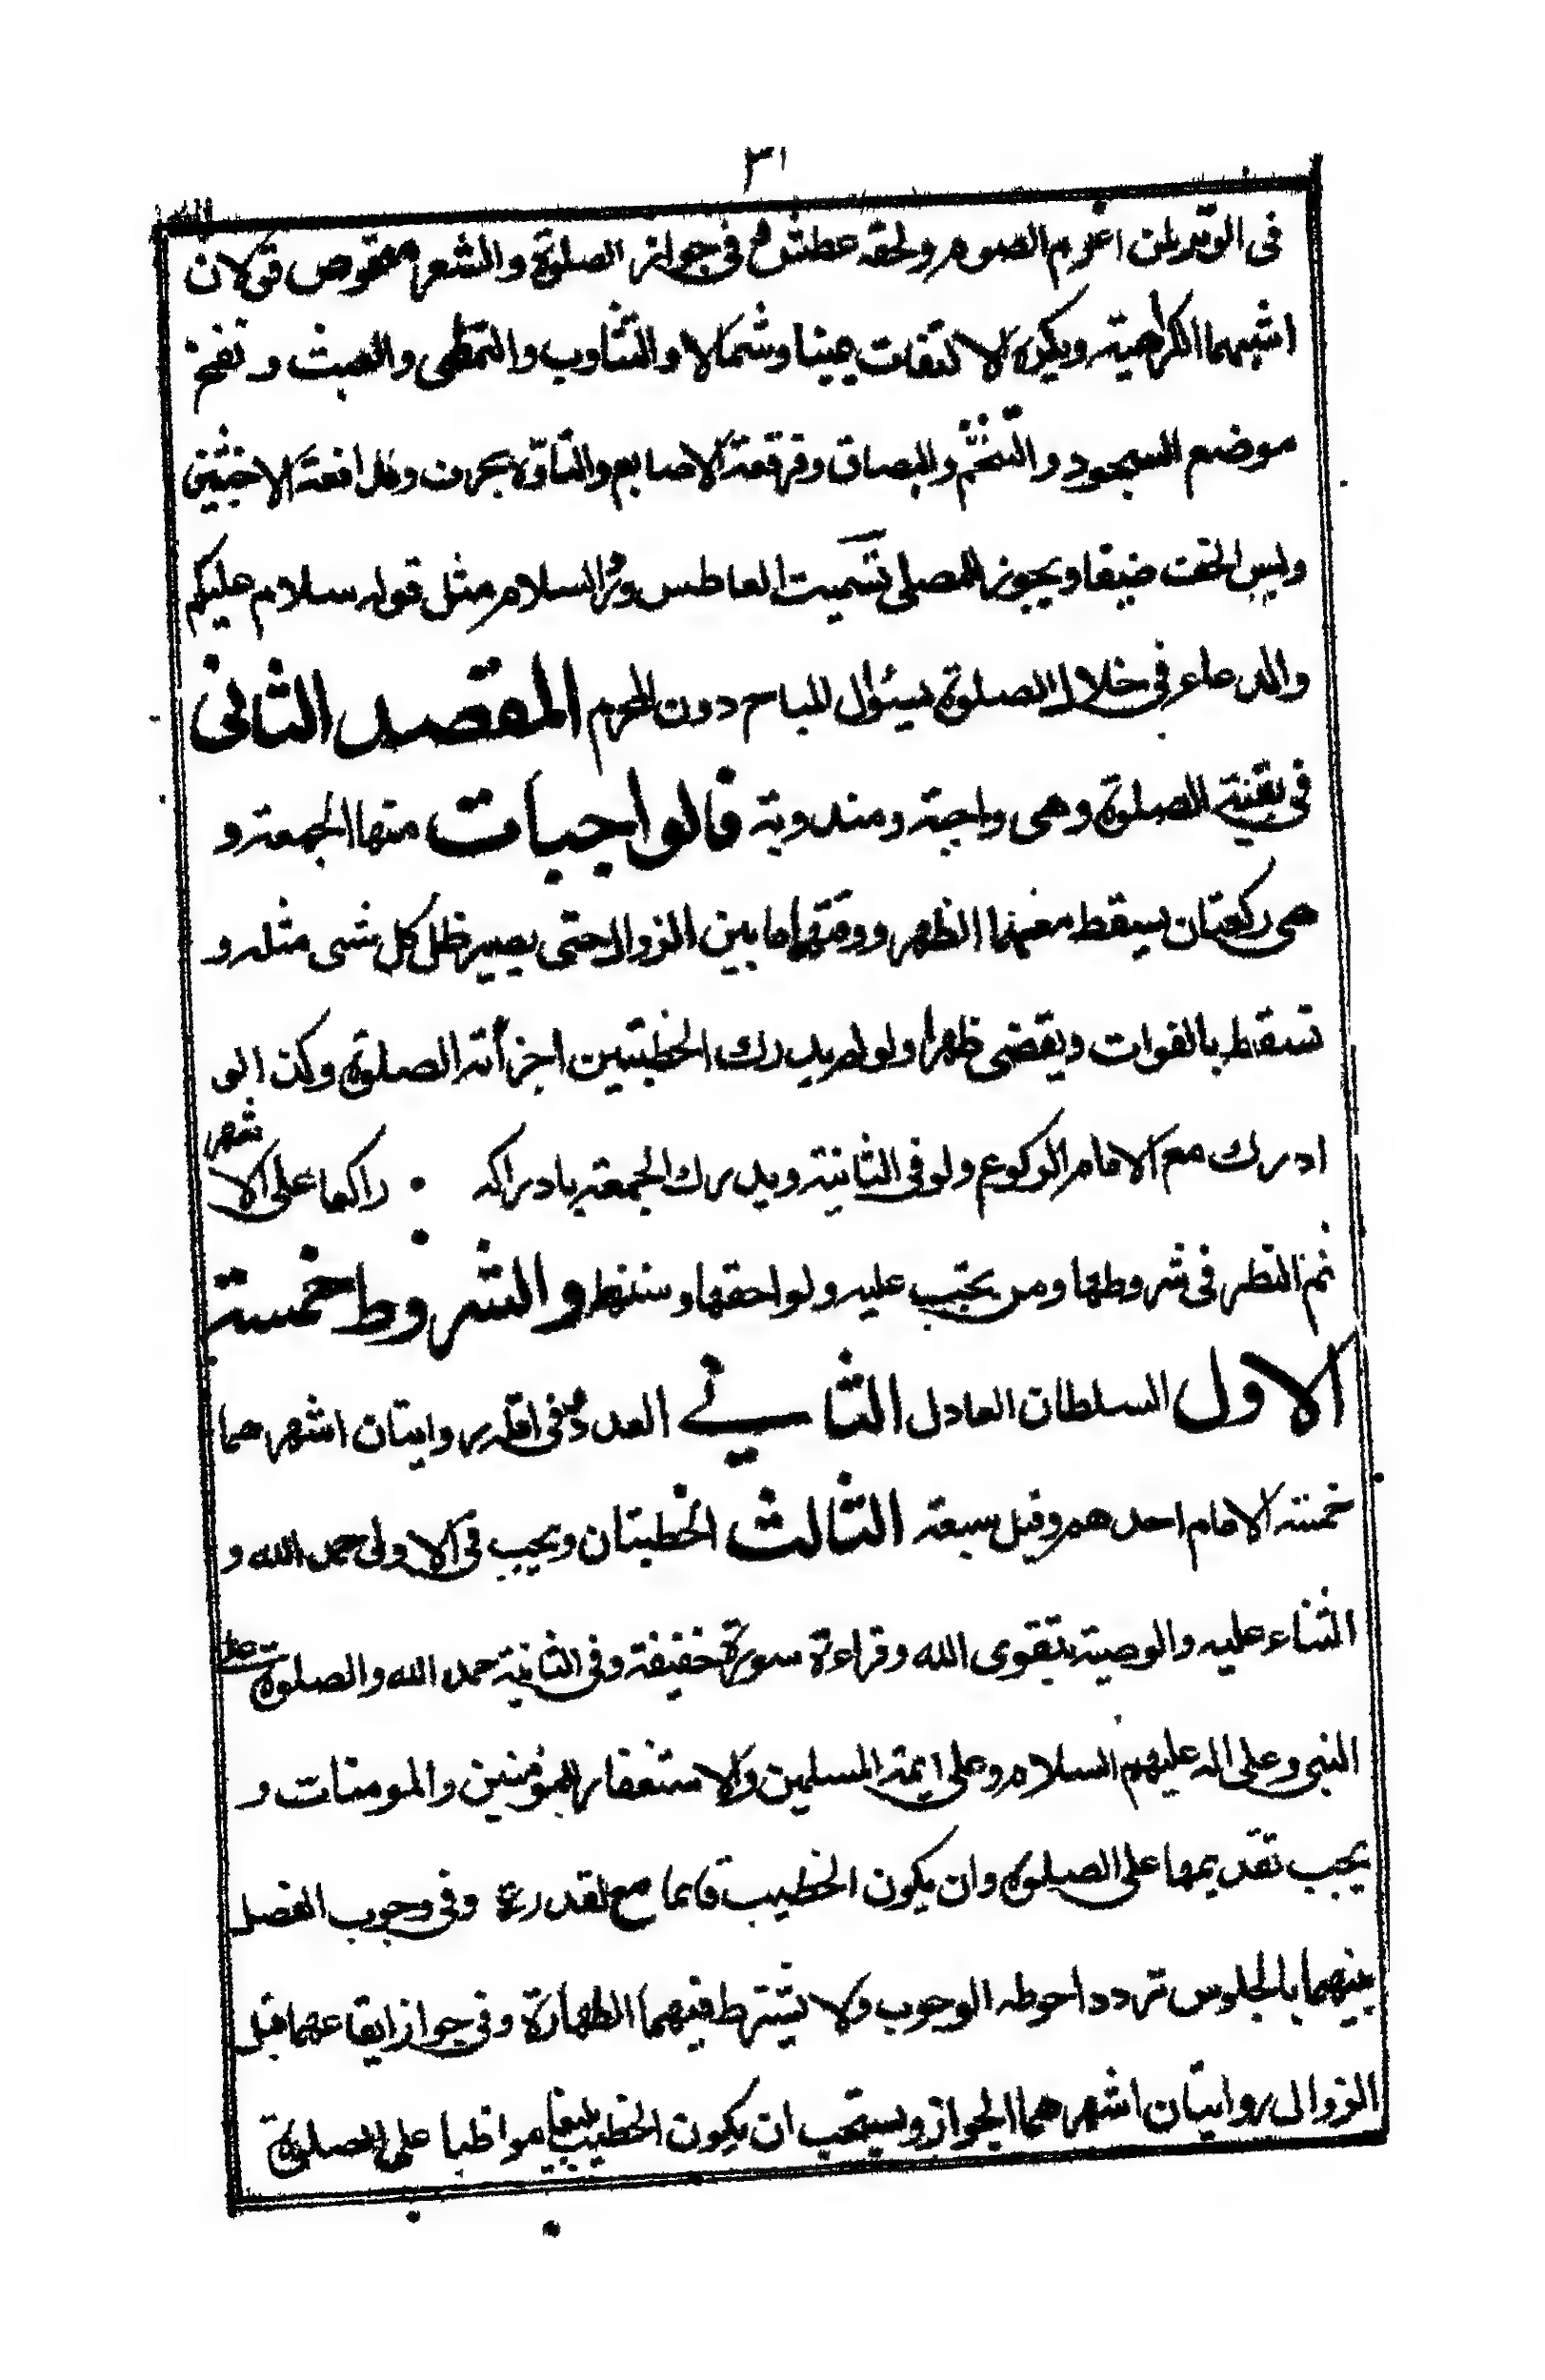 ٣١
فى الوتر لمن اعزم الصوم ولحقه عطش و فى جواز الصلوة والشعر معقوص قولان
اشبههما الكراهية ويكره الالتفات يمينا وشمالا والتثاوب والتمطى والعبث و نفخ
موضع السجود والتنخم والبصاق وفرقعة الاصابع والتاوه بحرف ومدافعة الاخبثين
ولبس الخف ضيقا ويجوز للمصلى تسميت العاطس ورد السلام مثل قوله سلام عليكم
والدعاء فى خلال الصلوة بسئوال المباح دون المحرم المقصد الثانى
فى بقية الصلوة وهى واجبة ومندوبة فالواجبات منها الجمعة و
هى ركعتان يسقط معهما الظهر ووقتها ما بين الزوال حتى يصير ظل كل شى مثله و
تسقط بالفوات ويقضى ظهرا ولو لم يدرك الخطبتين اجزأته الصلوة وكذا لو
ادرك مع الامام الركوع ولو فى الثانية ويدرك الجمعة بادراكه راكعا على الاشهر
ثم النظر فى شروطها ومن تجب عليه ولواحقها وسننها والشروط خمسة
الاول السلطان العادل الثانے العدد و فى اقله روايتان اشهرهما
خمسة الامام احدهم وقيل سبعة الثالث الخطبتان ويجب فى الاولى حمد الله و
الثناء عليه والوصية بتقوى الله وقراءة سورة خفيفة وفى الثانية حمد الله والصلوة على
النبى وعلى اله عليهم السلام وعلى ايمة المسلمين والاستغفار للمؤمنين والمومنات و
يجب تقديمها على الصلوة وان يكون الخطيب قايما مع لقدرة وفى وجوب الفصل
بينهما بالجلوس تردد احوطه الوجوب ولا يشترط فيهما الطهارة وفى جواز ايقاعهما قبل
الزوال روايتان اشهرهما الجواز ويستحب ان يكون الخطيب بليغا مواظبا على الصلوة